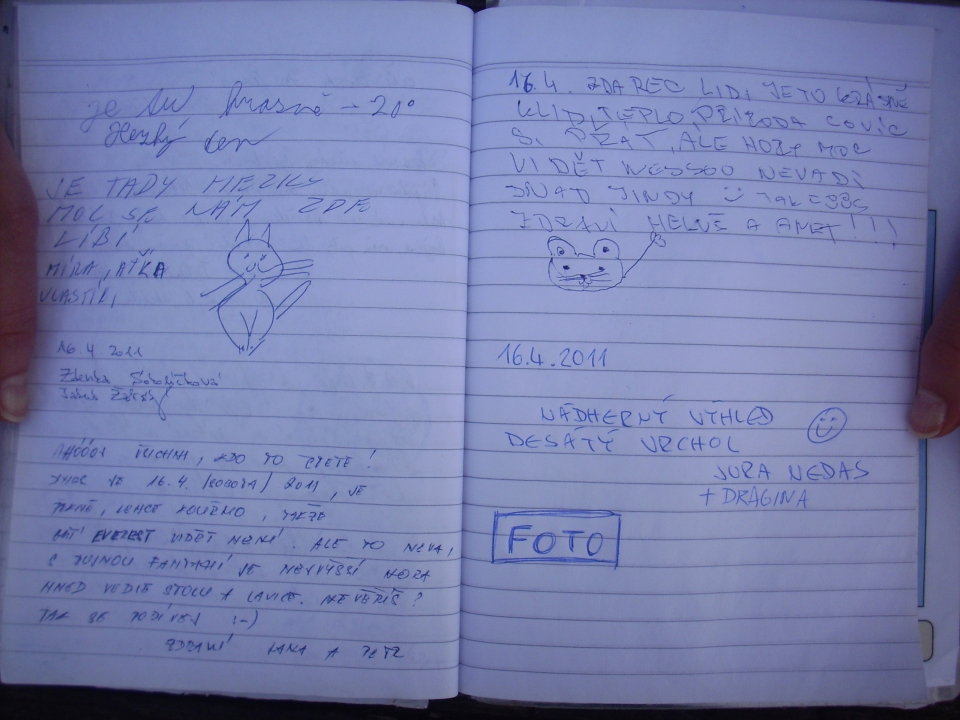 je tu krásně - 20°
Hezký den
JE TADY HEZKY
MOC SE NÁM ZDE
LÍBÍ
MÍRA, AŤKA
VLASTÍK,
16 4. 2011
Zdenka
AHÓÓOJ VŠICHNI, KDO TO ČTETE!
DNES JE 16.4. (SOBOTA) 2011, JE
LEHCE ZOUŽENO, TAKŽE
EVEREST VIDĚT NENÍ. ALE TO NEVA,
S TROJNOU FANTAZIÍ JE NEJVYŠŠÍ HORA
HNED VEDLE STOLU A LAVICE. NEVĚŘÍŠ?
TAK SE PODÍVEJ :-)
ZDRAVÍ HANA A PETR
16.4. ZDAREC LIDI, JE TO KRÁSNĚ
KLID, TEPLO, PŘÍRODA COVÍC
SI PŘÁT, ALE HORY MOC
VIDĚT NEJSOU NEVADÍ
SNAD JINDY TAK ZAS
ZDRAVÍ HELUŠ A ANET!!!
16.4.2011
NÁDHERNÝ VÝHLED
DESÁTÝ VRCHOL
JURA NEDAS
+ DRAGINA
FOTO